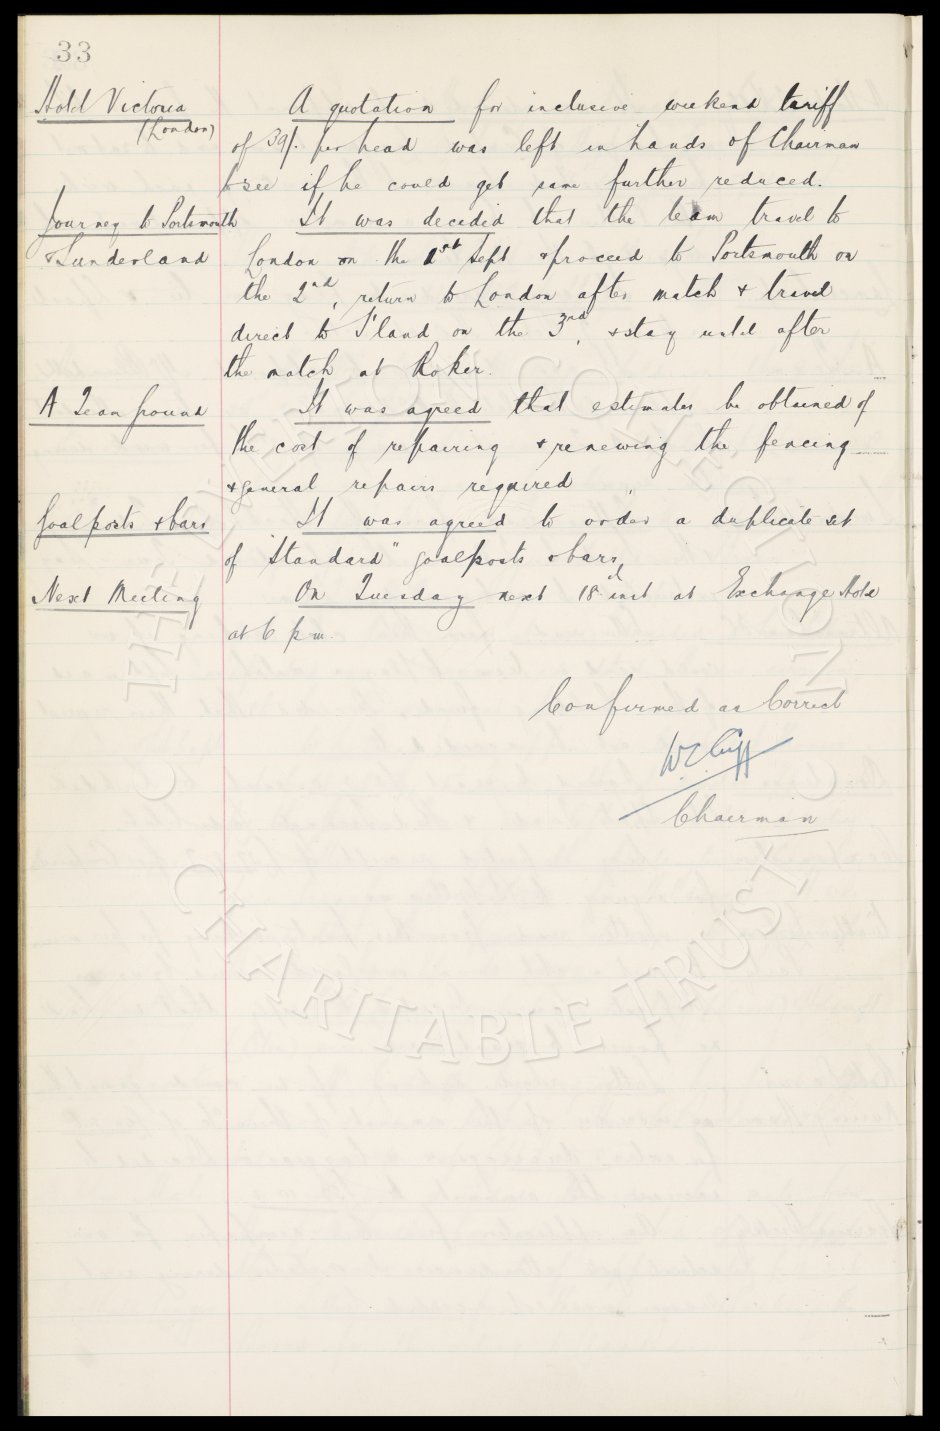 33
Hotel Victoria
(London)
A quotation for inclusive weekend tariff
of 39/- per head was left in hands of Chairman
to see if he could get same further reduced.
Journey to Portsmouth
& Sunderland
It was decided that the team travel to
London on the 1st Sept & proceed to Portsmouth on
the 2nd, return to London after match & travel
direct to S'land on the 3rd, & stay until after
the match at Roker.
A Team ground
It was agreed that estimates be obtained of
the cost of repairing & renewing the fencing
& general repairs required
Goalposts & bars
It was agreed to order a duplicate set
of "Standard" goalposts & bars,
Next Meeting
On Tuesday next 18th inst at Exchange Hotel
at 6 p m.
Confirmed as Correct
W.C. Cuff
Chairman
THE EVERTON COLLECTION
CHARITABLE TRUST